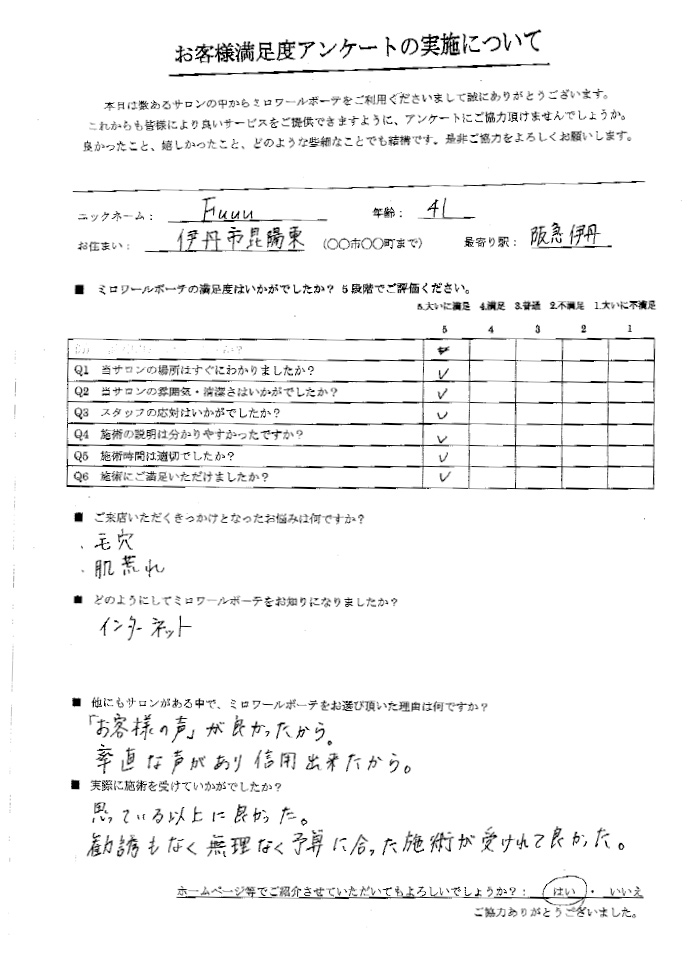 お客様満足度アンケートの実施について
本日は数あるサロンの中からミロワールボーテをご利用くださいまして誠にありがとうございます。
これからも皆様により良いサービスをご提供できますように、アンケートにご協力頂けませんでしょうか。
良かったこと、嬉しかったこと、どのような些細なことでも結構です。是非ご協力をよろしくお願いします。
ニックネーム： Fuuu 年齢： 41
お住まい： 伊丹市昆陽東 （〇〇市〇〇町まで） 最寄り駅： 阪急伊丹
■ ミロワールボーテの満足度はいかがでしたか？ 5段階でご評価ください。
5.大いに満足 4.満足 3.普通 2.不満足 1.大いに不満足
5 4 3 2 1
✓
Q1 当サロンの場所はすぐにわかりましたか？ ✓
Q2 当サロンの雰囲気・清潔さはいかがでしたか？ ✓
Q3 スタッフの応対はいかがでしたか？ ✓
Q4 施術の説明は分かりやすかったですか？ ✓
Q5 施術時間は適切でしたか？ ✓
Q6 施術にご満足いただけましたか？ ✓
■ ご来店いただくきっかけとなったお悩みは何ですか？
・毛穴
・肌荒れ
■ どのようにしてミロワールボーテをお知りになりましたか？
インターネット
■ 他にもサロンがある中で、ミロワールボーテをお選び頂いた理由は何ですか？
「お客様の声」が良かったから。
率直な声があり信用出来たから。
■ 実際に施術を受けていかがでしたか？
思っている以上に良かった。
勧誘もなく無理なく予算に合った施術が受けれて良かった。
ホームページ等でご紹介させていただいてもよろしいでしょうか？： はい ・ いいえ
ご協力ありがとうございました。